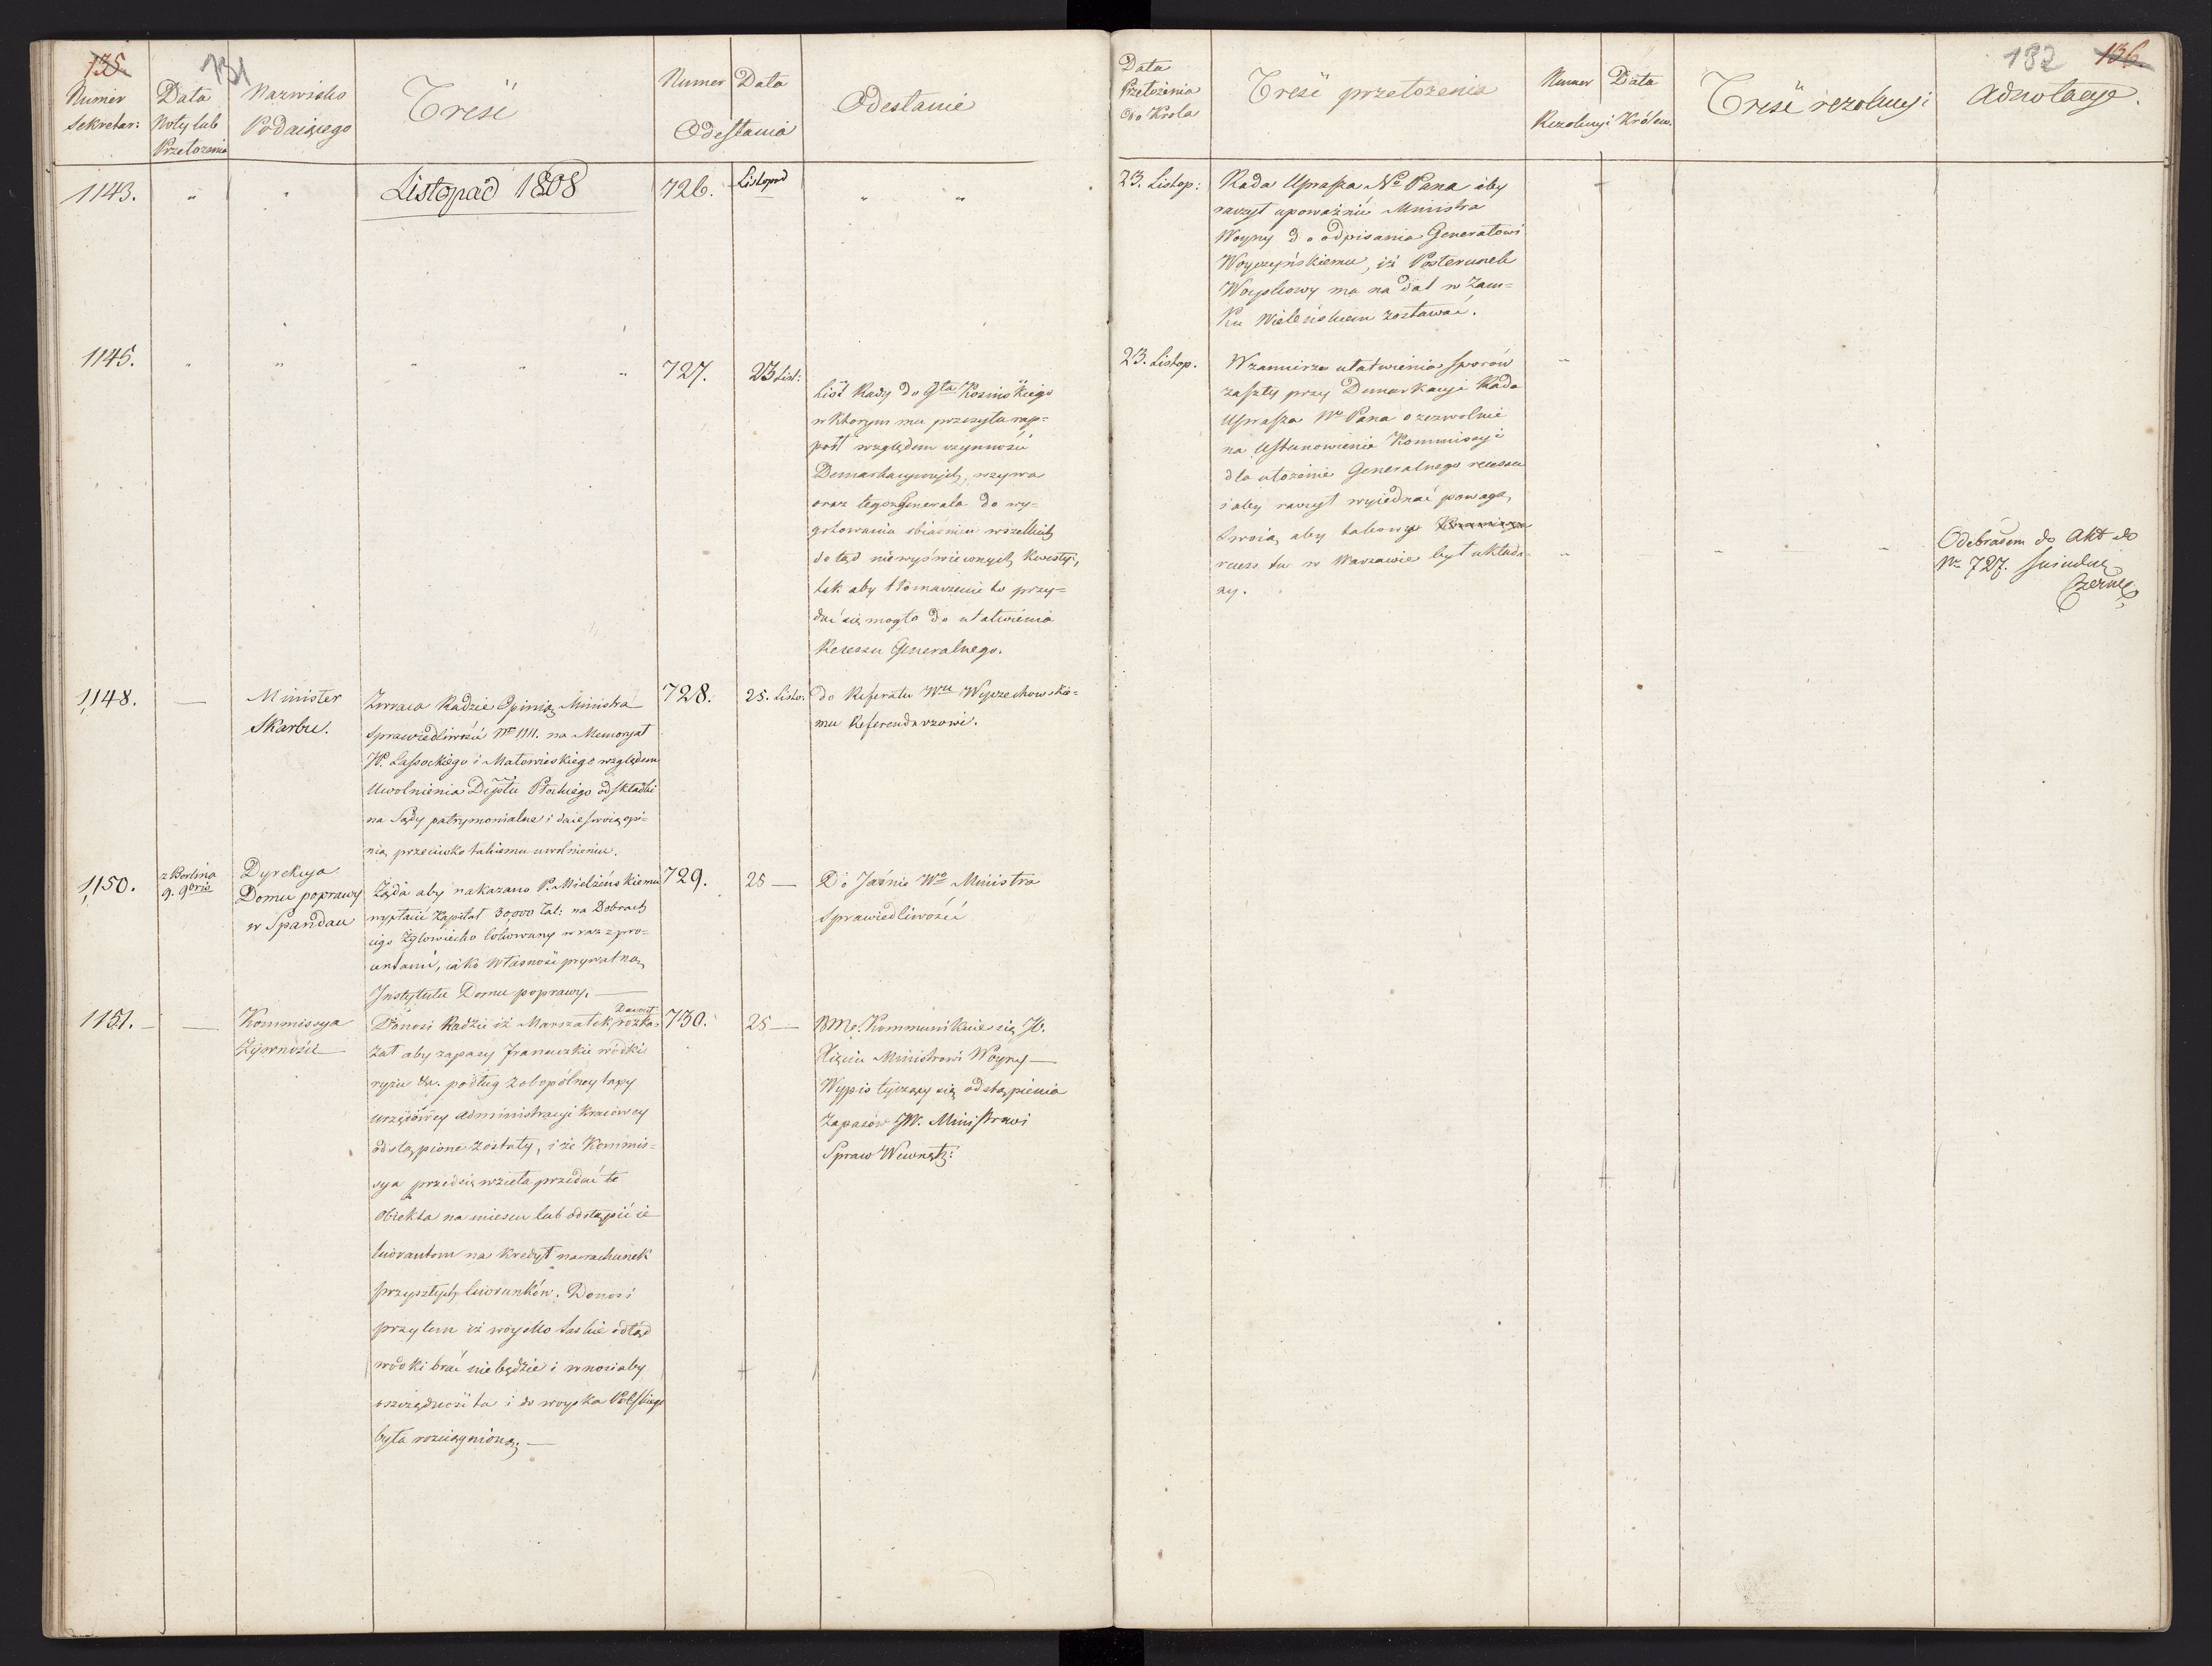 135.
131
Numer
Sekretar:
Data
Noty lub
Przełożenia
Nazwisko
Podaiącego
Treść
Numer
Data
Odesłania
Odesłanie
1143.
"
"
Listopad 1808
726.
Listopad
"
"
1145.
"
"
"
"
"
727.
23 List:
List Rady do Gła Kosińskiego
w którym mu przesyła rap=
port względem czynności
Demarkacyinych, wzywa
oraz tegoż Generała do wy=
gotowania obiaśnień wszelkich
dotąd niewyświeconych kwestyi,
tak aby tłomaczenie to przy=
dać się mogło do ułatwienia
Recessu Generalnego.
1148.
—
Minister
Skarbu.
Zwraca Radzie Opinią Ministra
Sprawiedliwości Nro 1111. na Memoryał
W. Lassockiego i Matowieskiego względem
Uwolnienia Deptu Płockiego od składki
na Sądy patrymonialne i daie swoią opi=
nią przeciwko takiemu uwolnieniu.
728.
25. Listo:
do Referatu Wu Wyczechowskie=
mu Referendarzowi.
1150.
z Berlina
9. 9bris
Dyrekcya
Domu poprawy
w Spandau
Żąda aby nakazano P. Mielżeńskiemu
wypłacić Kapitał 30,000 tal: na Dobrach
iego Zgłowiecko lokowany wraz z pro=
centami, iako własność prywatną
Instytutu Domu poprawy. —
729.
25 —
Do Jaśnie Wo Ministra
Sprawiedliwości
1151. —
—
Kommissya
Żywności
Donosi Radzie iż Marszałek Davout rozka=
zał aby zapasy francuzkie wódki
ryżu &c. podług zobopólney taxy
urzędowey administracyi kraiowey
odstąpione zostały, i że Kommis=
sya przedsięwzieła przedać te
Obiekta na mieścu lub odstąpić ie
liwrantom na kredyt na rachunek
przyszłych liwrunków. Donosi
przytem iż woysko Saskie odtąd
wódki brać nie będzie i wnosi aby
oszczędność ta i do woyska Polskiego
była rozciągnioną. —
730.
25 —
BMo. Kommunikuie się JO.
Xięciu Ministrowi Woyny —
Wypis tyczący się odstąpienia
Zapasów JW. Ministrowi
Spraw Wewnętz:
132
136.
Data
Przełożenia
do Króla
Treść przełożenia
Numer
Data
Rezolucyi Królew.
Treść rezolucyi
Adnotacye.
23. Listop:
Rada Uprasza No Pana aby
raczył upoważnić Ministra
Woyny do odpisania Generałowi
Woyczyńskiemu, iż Posterunek
Woyskowy ma na dal w Zam=
ku Wieleńskiem zostawać.
23. Listop.
W zamiarze ułatwienia sporów
zaszły przy Demarkacyi Rada
Uprasza No Pana o zezwolnie
na Ustanowienie Kommissyi
dla ułożenie Generalnego recessu
i aby raczył wyiednać powagą
swoią aby takowy Kommissya
recess tu w Warszawie był układa=
ny.
Odebrałem do Akt do
Nro 727.
Czerné